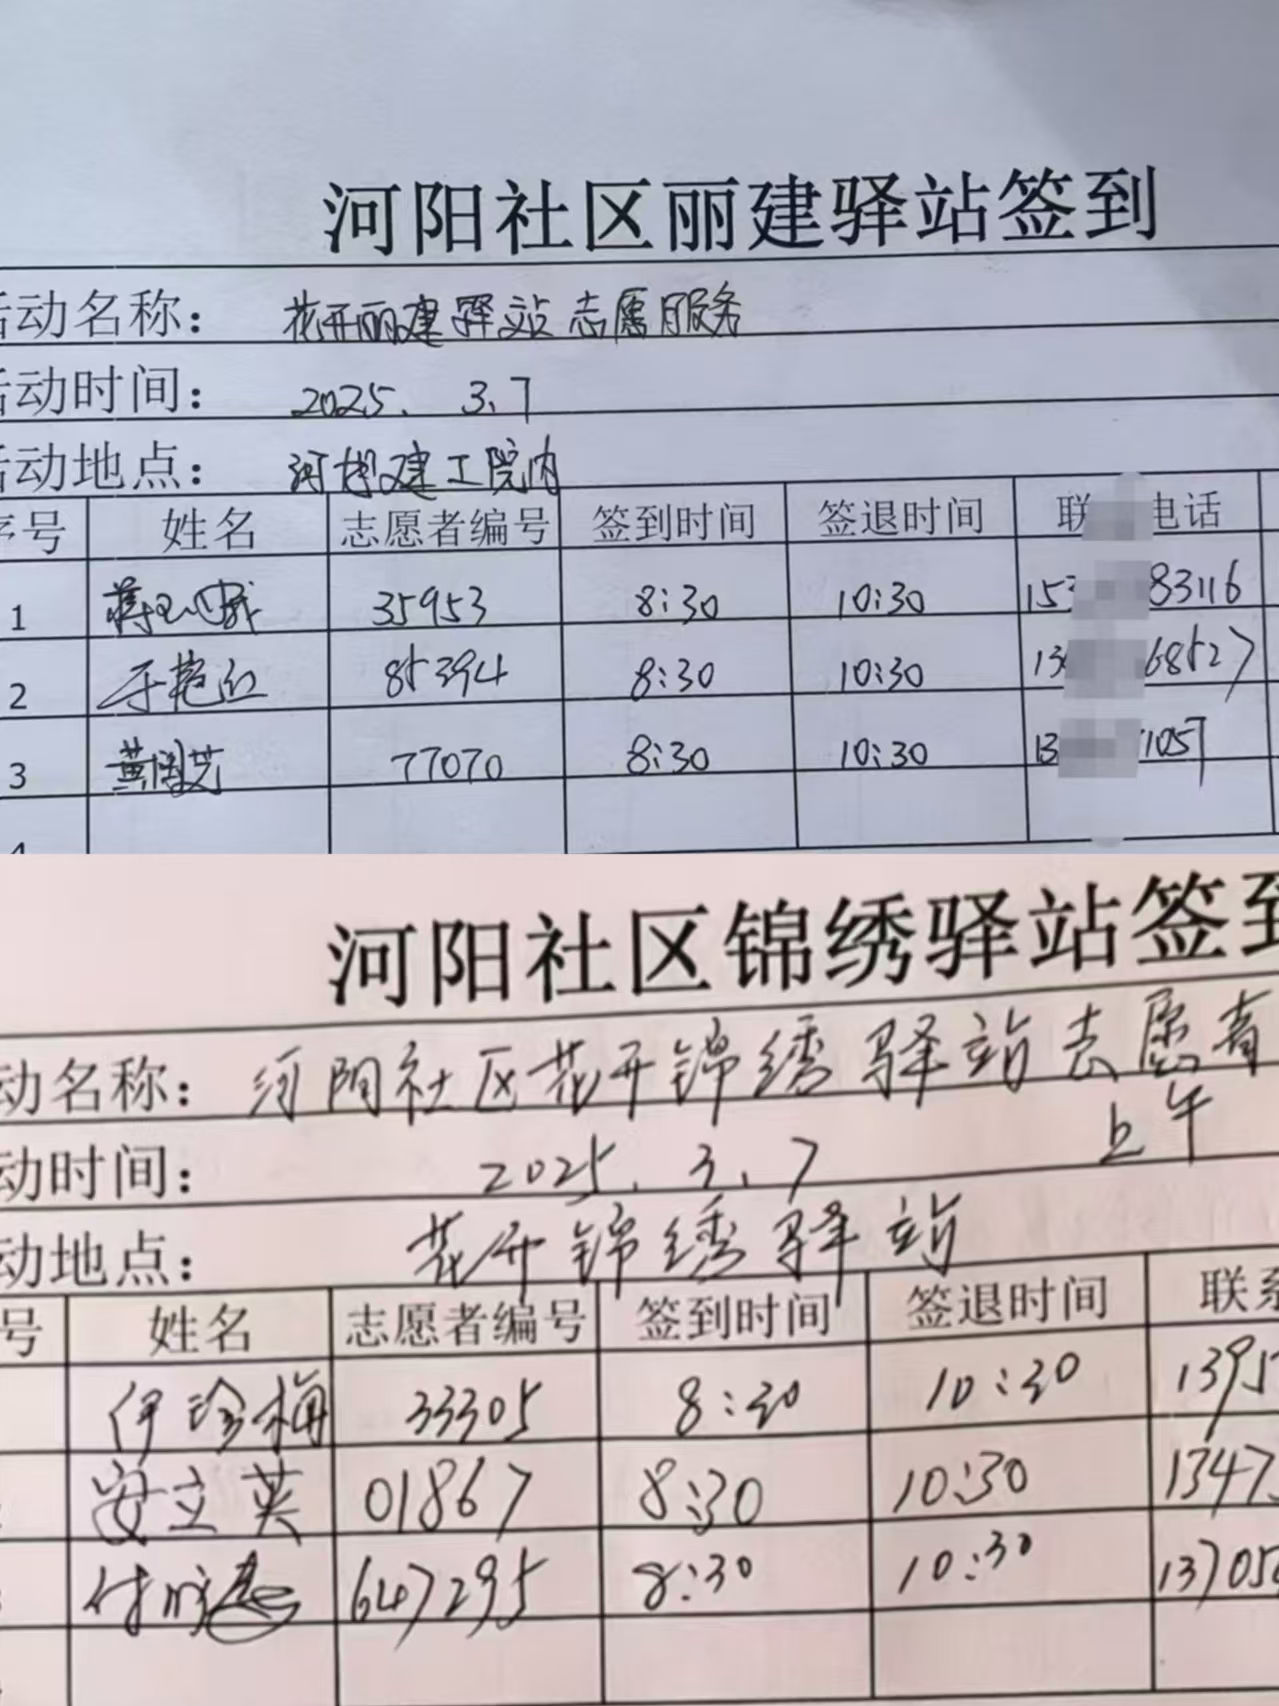 河阳社区丽建驿站签到
活动名称： 花开丽建驿站志愿服务
活动时间： 2025. 3.7
活动地点： 建工院内
序号 姓名 志愿者编号 签到时间 签退时间 联 电话
1 35953 8:30 10:30 15 83116
2 于艳红 85394 8:30 10:30 13 68527
3 黄 芝 77070 8:30 10:30 13 1057
4
河阳社区锦绣驿站签到
动名称： 河阳社区花开锦绣驿站志愿者
动时间： 2025. 3. 7 上午
动地点： 花开锦绣驿站
号 姓名 志愿者编号 签到时间 签退时间 联系
伊珍梅 33305 8:30 10:30 1395
安立英 01867 8:30 10:30 1347
付 647295 8:30 10:30 13705